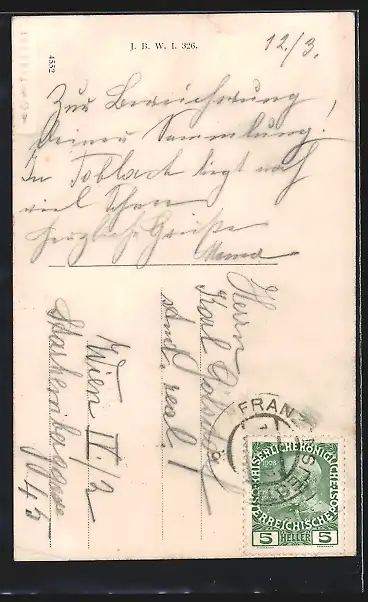 J. B. W. I. 326.
4552
12./3.
Zur Bereicherung
Deiner Sammlung!
In Toblach liegt noch
viel Schnee
Herzliche Grüße
Mama
Herrn
Karl
stud. real.
Wien IV/2
Starhemberggasse
FRANZ
KAISERLICHE KÖNIGLICHE
ÖSTERREICHISCHE POST
1908
5 HELLER 5